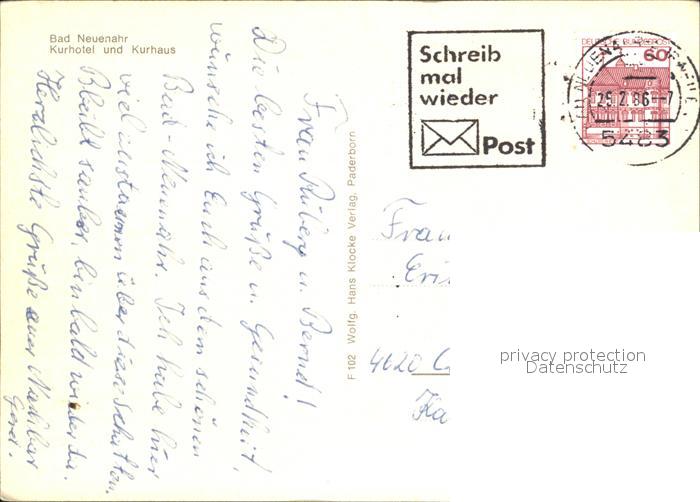 Bad Neuenahr
Kurhotel und Kurhaus
Frau Rüberg u. Bernd!
Die besten Grüße u. Gesundheit,
wünsche ich Euch aus dem schönen
Bad-Neuenahr. Ich habe hier
viel über diese
Bleibt sauber, bin bald wieder da.
Herzlichste Grüße euer Nachbar
Gerd.
F 102 Wolfg. Hans Klocke Verlag, Paderborn
Schreib
mal
wieder
Post
DEUTSCHE BUNDESPOST
60
25.2.86-7
5483
Frau
Eri
4620 C
Ka
privacy protection
Datenschutz